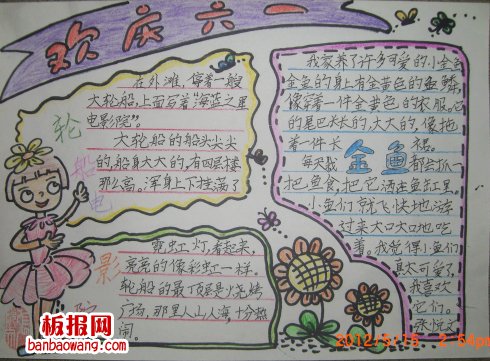 欢庆六一
轮船电影院
在外滩,停着一艘
大轮船,上面写着"海蓝之星
电影院"。
大轮船的船头尖尖
的,船身大大的,有四层楼
那么高,浑身上下挂满了
霓虹灯,看起来,
亮亮的像彩虹一样。
轮船的最顶层是火烧烤
广场,那里人山人海,十分热
闹。
我家养了许多可爱的小金鱼
金鱼的身上有金黄色的鱼鳞,
像穿着一件金黄色的衣服,它
的尾巴长长的,大大的,像拖
着一件长裙。
金鱼
每天我都会抓一
把鱼食,把它洒在鱼缸里。
小鱼们就飞快地游
过来大口大口地吃
着。我觉得小鱼们
真太可爱了
我喜欢
它们。
张悦文
板报网
www.banbaowang.com
2012/5/15 2:54pm